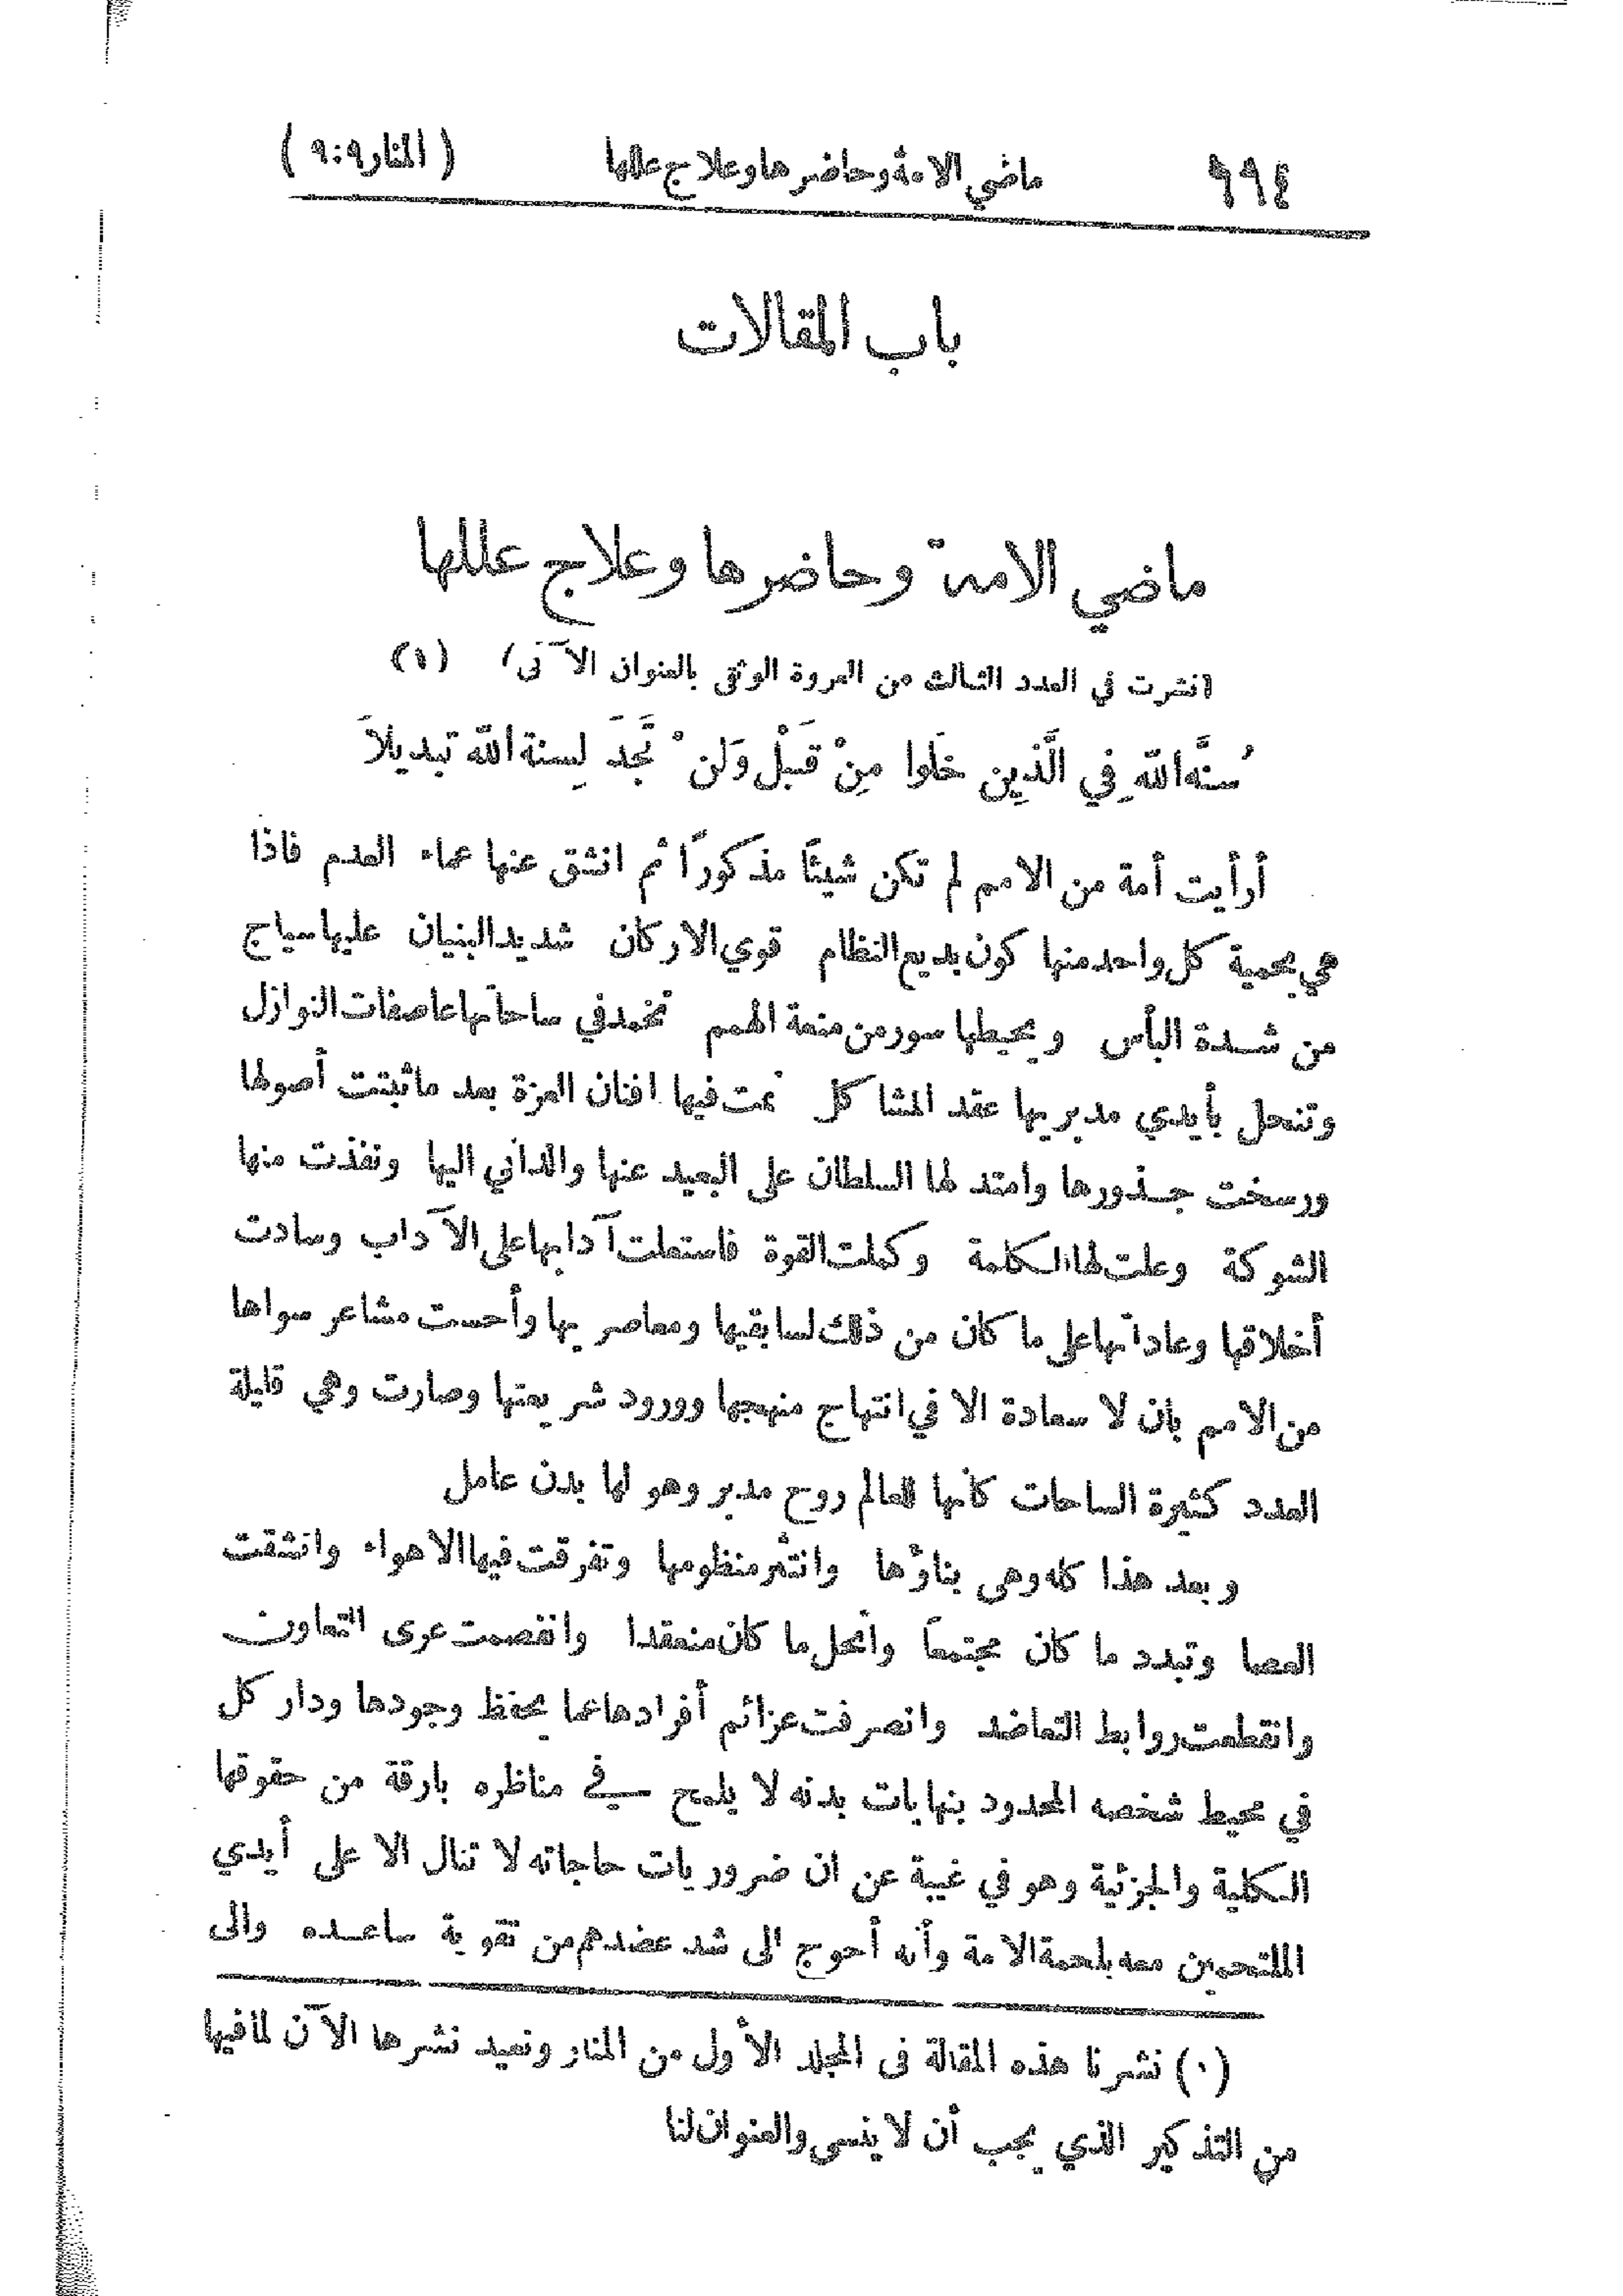 ٦٦٤ ماضي الامة وحاضرها وعلاج عللها (المنار ٩:٩)
باب المقالات
ماضي الامة وحاضرها وعلاج عللها
نشرت في العدد الثالث من العروة الوثقى بالعنوان الآتي (١)
سُنَّه الله فِي الَّذِين خَلَوا مِنْ قَبْل وَلَنْ تَجدَ لِسنة الله تبديلاَ
أرأيت أمة من الامم لم تكن شيئًا مذكورًا ثم انشق عنها عماء العدم فاذا
هي بحمية كل واحد منها كون بديع النظام قوي الاركان شديد البنيان عليها سياج
من شدة البأس ويحيطها سور من منعة الهمم تخمد في ساحاتها عاصفات النوازل
وتنحل بأيدي مدبريها عقد المشاكل نمت فيها افنان العزة بعد ما ثبتت أصولها
ورسخت جذورها وامتد لها السلطان على البعيد عنها والداني اليها ونفذت منها
الشوكة وعلت لها الكلمة وكملت القوة فاستعلت آدابها على الآداب وسادت
أخلاقها وعاداتها على ما كان من ذلك لسابقيها ومعاصريها وأحست مشاعر سواها
من الامم بان لا سعادة الا في انتهاج منهجها وورود شريعتها وصارت وهي قليلة
العدد كثيرة الساحات كأنها للعالم روح مدبر وهو لها بدن عامل
وبعد هذا كله وهى بناؤها وانتثر منظومها وتفرقت فيها الاهواء وانشقت
العصا وتبدد ما كان مجتمعاً وانحل ما كان منعقدا وانفصمت عرى التعاون
وانقطعت روابط التعاضد وانصرفت عزائم أفرادها عما يحفظ وجودها ودار كل
في محيط شخصه المحدود بنهايات بدنه لا يلمح في مناظره بارقة من حقوقها
الكلية والجزئية وهو في غيبة عن ان ضروريات حاجاته لا تنال الا على أيدي
الملتحمين معه بلحمة الامة وأنه أحوج الى شد عضدهم من تقوية ساعده والى
(١) نشرنا هذه المقالة فى المجلد الأول من المنار ونعيد نشرها الآن لما فيها
من التذكير الذي يجب أن لا ينسى والعنوان لنا